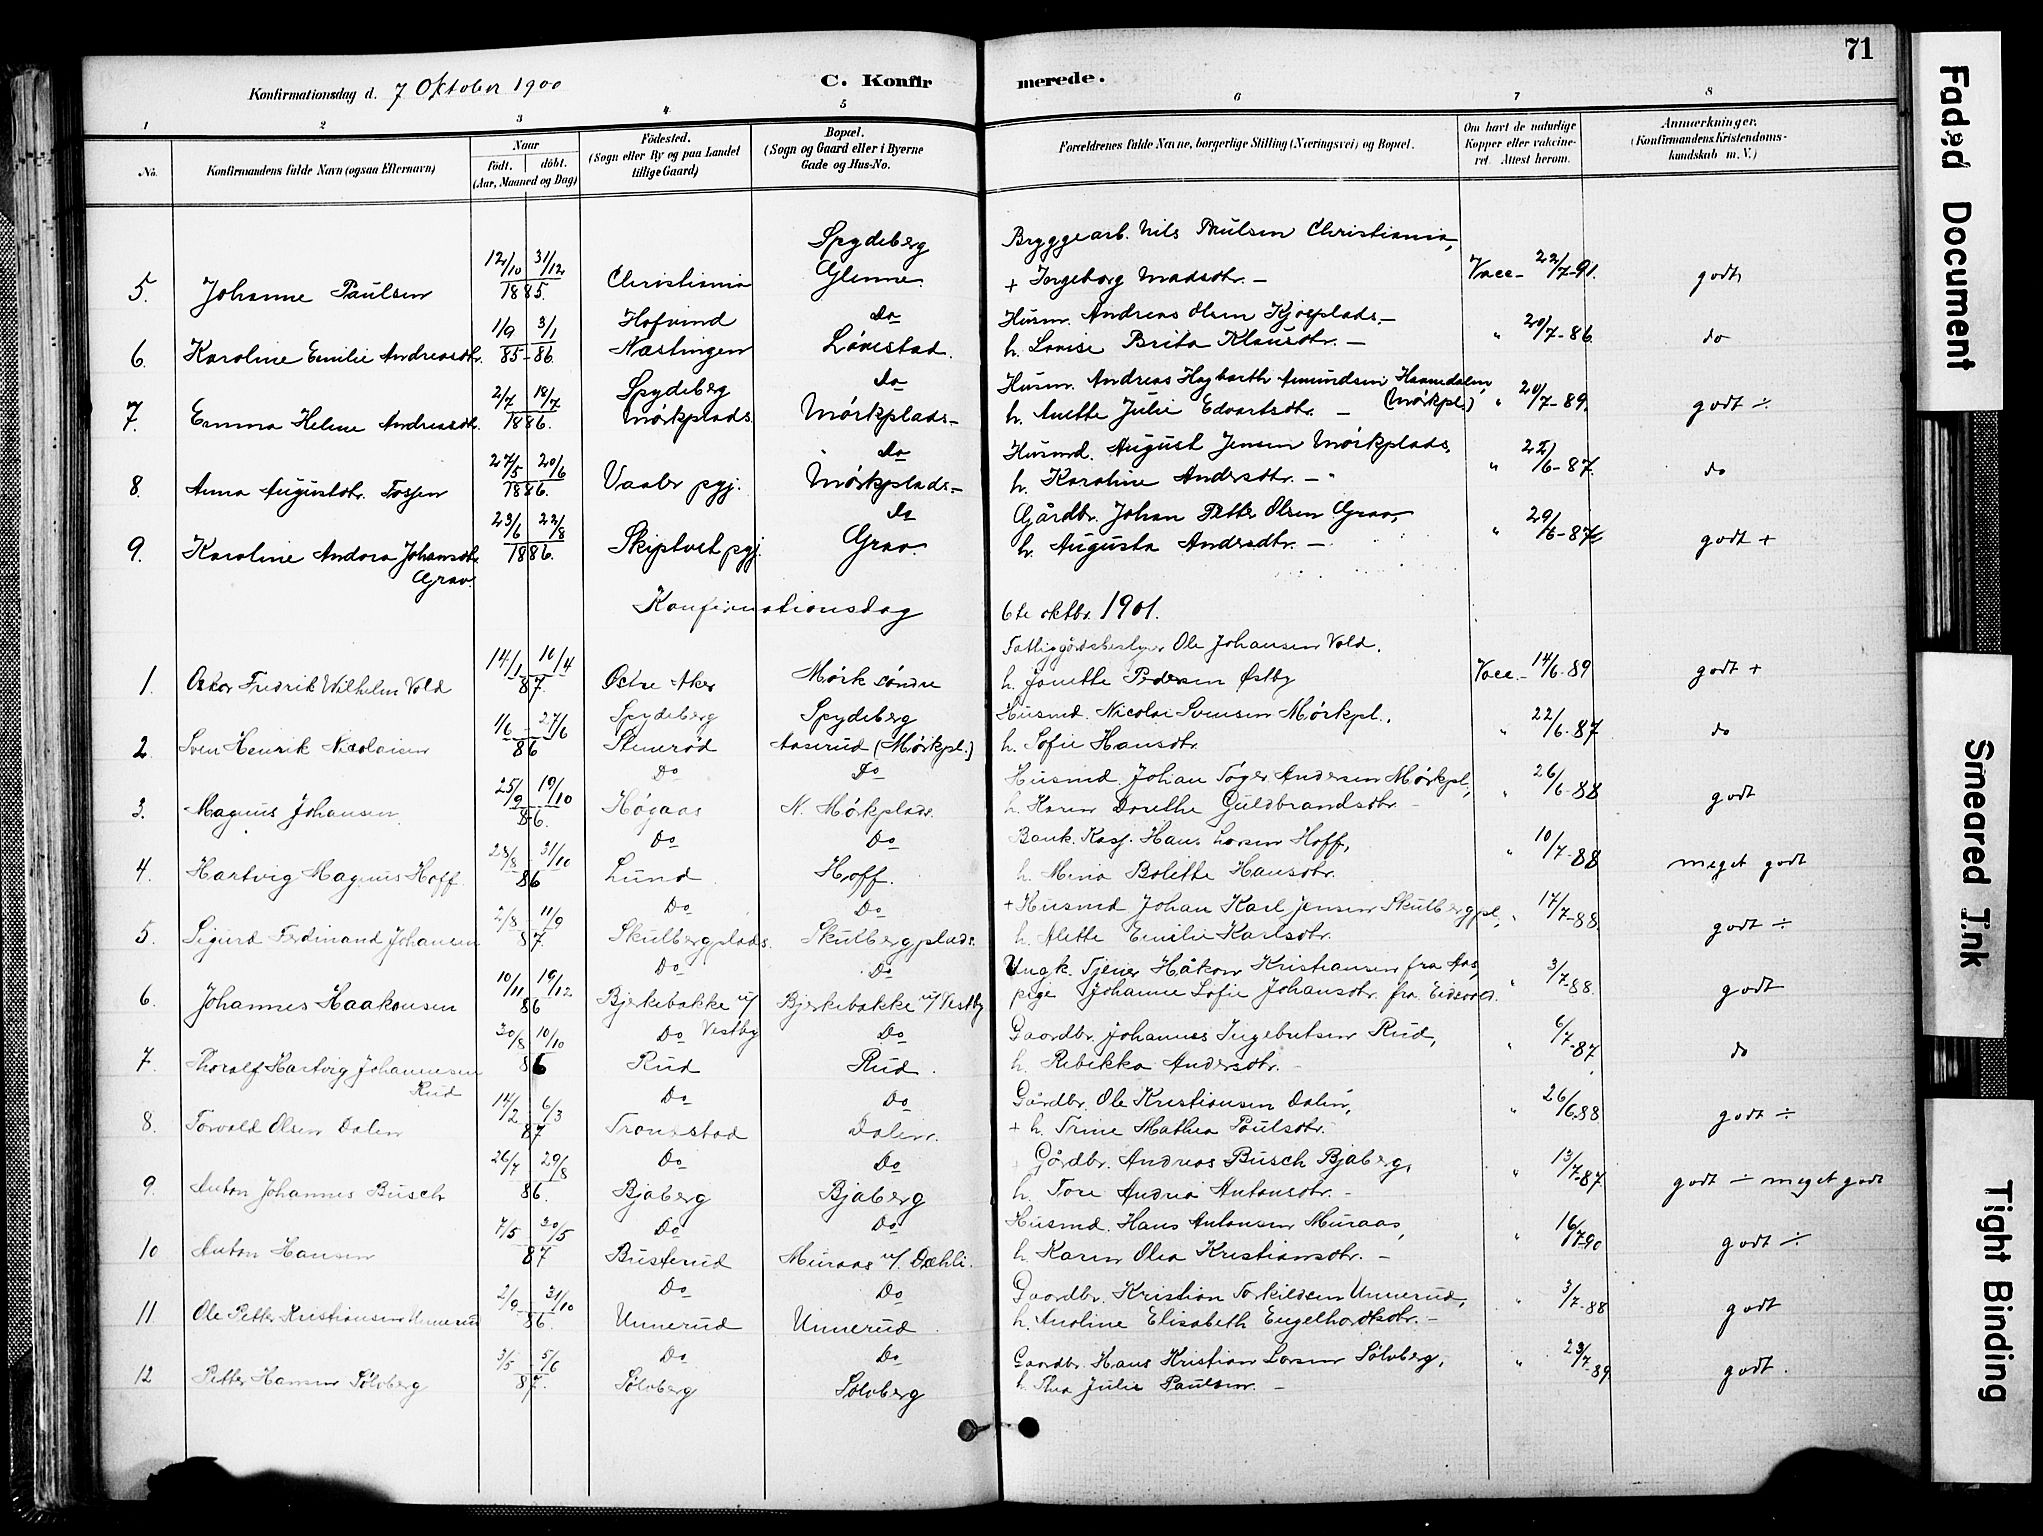 71
Konfirmationsdag d. 7 Oktober 1900
C. Konfirmerede.
1 2 3 4. 5 6 7 8
No.
Konfirmandens fulde Navn (ogsaa Efternavn)
Naar
födt. döbt.
(Aar, Maaned og Dag)
Födested.
(Sogn eller By og paa Landet
tillige Gaard)
Bopæl.
(Sogn og Gaard eller i Byerne
Gade og Hus-No.
Forældrenes fulde Navne, borgerlige Stilling (Næringsvei) og Bopæl.
Om havt de naturlige
Kopper eller vakcine-
ret. Attest herom.
Anmærkninger.
(Konfirmandens Kristendoms-
kundskab m. V.)
Spydeberg Bryggearb. Nils Paulsen Christiania,
5. Johanne Paulsen 12/10 31/12 1885. Christiania Glenne + Ingeborg Madsdtr. — Vacc. 22/7-91. godt
Hofvind Do Husm. Andreas Olsen
6. Karoline Emilie Andreasdtr. 1/9 3/1 85-86. Næstingen Løvestad. h. Lovise Brita Klausdtr. — " 20/7-86. do
Spydeberg Do Husm. Andreas Hagbarth Amundsen
7. Emma Helene Andreasdtr. 2/7 18/7 1886. Mörkplads Mörkplads h. Anette Julie Edvartsdtr. — (Mörkpl.) " 20/7-89. godt ÷
Do Husmd. August Jensen Mörkplads,
8. Anna Augustdtr. Fosjen 27/5 20/6 1886. Vaaler pgj. Mörkplads h. Karoline Andersdtr. — " /6-87. do
Do Gårdbr. Johan Petter Olsen Grav,
9. Karoline Andora Johansdtr. 23/6 22/8 1886. Skiptvet pgj. Grav h. Augusta Andersdtr. — " 29/6-87 godt +
Grav.
Konfirmationsdag 6te oktbr. 1901.
Fattiggårdsbestyrer Ole Johansen Vold.
1. Oskar Fredrik Wilhelm Vold 14/1 10/4 87. Østre Aker Mörk söndre h. Jonette Pedersen Østby Vacc. 14/6-89 godt +
Spydeberg Spydeberg Husmd. Nicolai Svensen Mørkpl.,
2 Sven Henrik Nicolaisen 1/6 27/6 86 Stenerød Aaserud (Mørkpl.) h. Sofie Hansdtr. " 22/6-87 do
Do Do Husmd Johan Roger Andersen Mørkpl,
3. Magnus Johansen 25/9 19/10 86. Høgaas N. Mørkplads. h. Karen Dorethe Guldbrandsdtr. — " 26/6-88 godt
Do Do Bank. Kasj. Hans Larsen Hoff,
4. Hartvig Magnus Hoff. 28/8 31/10 86 Lund Hoff. h. Mina Bolette Hansdtr. " 10/7-88 meget godt
Do Do + Husmd Johan Karl Jensen Skulbergpl,
5. Sigurd Ferdinand Johansen 2/8 11/9 87. Skulbergplads. Skulbergplads. h. Alette Emilie Karlsdtr. " 17/7-88 godt ÷
Do Do Ungk. Tjener Håkon Kristiansen fra Aas,
6. Johannes Haakonsen 10/11 19/12 86 Bjerkebakke u/ Vestby Bjerkebakke u/ Vestby pige Johanne Sofie Johansdtr. fra Eidsvold. " 3/7-88. godt
Do Do Gaardbr. Johannes Ingebretsen Rud,
7. Thoralf Hartvig Johannesen 30/8 10/10 86 Rud Rud. h. Rebekka Andersdtr. — " 6/7-87, do
Rud
Do Do Gårdbr. Ole Kristiansen Dalen,
8. Torvald Olsen Dalen 14/2 6/3 87 Tronstad Dalen. + h. Trine Mathea Paulsdtr. " 26/6.88 godt ÷
Do Do Gårdbr. Andreas Busch Bjaberg,
9. Anton Johannes Busch 26/7 29/8 86. Bjaberg Bjaberg h. Tore Andrea Antonsdtr. — " 13/7-87. godt ÷ meget godt
Do Do Husmd. Hans Antonsen Muraas,
10 Anton Hansen 7/5 30/5 87 Busterud Muraas u/. Dæhli. h. Karen Olea Kristiansdtr. — " 16/7-90 godt ÷
Do Do Gaardbr. Kristian Torkildsen Unnerud,
11. Ole Petter Kristiansen Unnerud 2/9 31/10 86. Unnerud Unnerud. h. Anoline Elisabeth Engelhardtsdtr. — " 3/7-88 godt
Do Do Gaardbr. Hans Kristian Larsen Sölvberg,
12 Petter Hansen Sölvberg 3/5 5/6 87. Sölvberg Sölvberg h. Thea Julie Paulsen. — " 23/7-89 godt.
Faded Document
Smeared Ink
Tight Binding